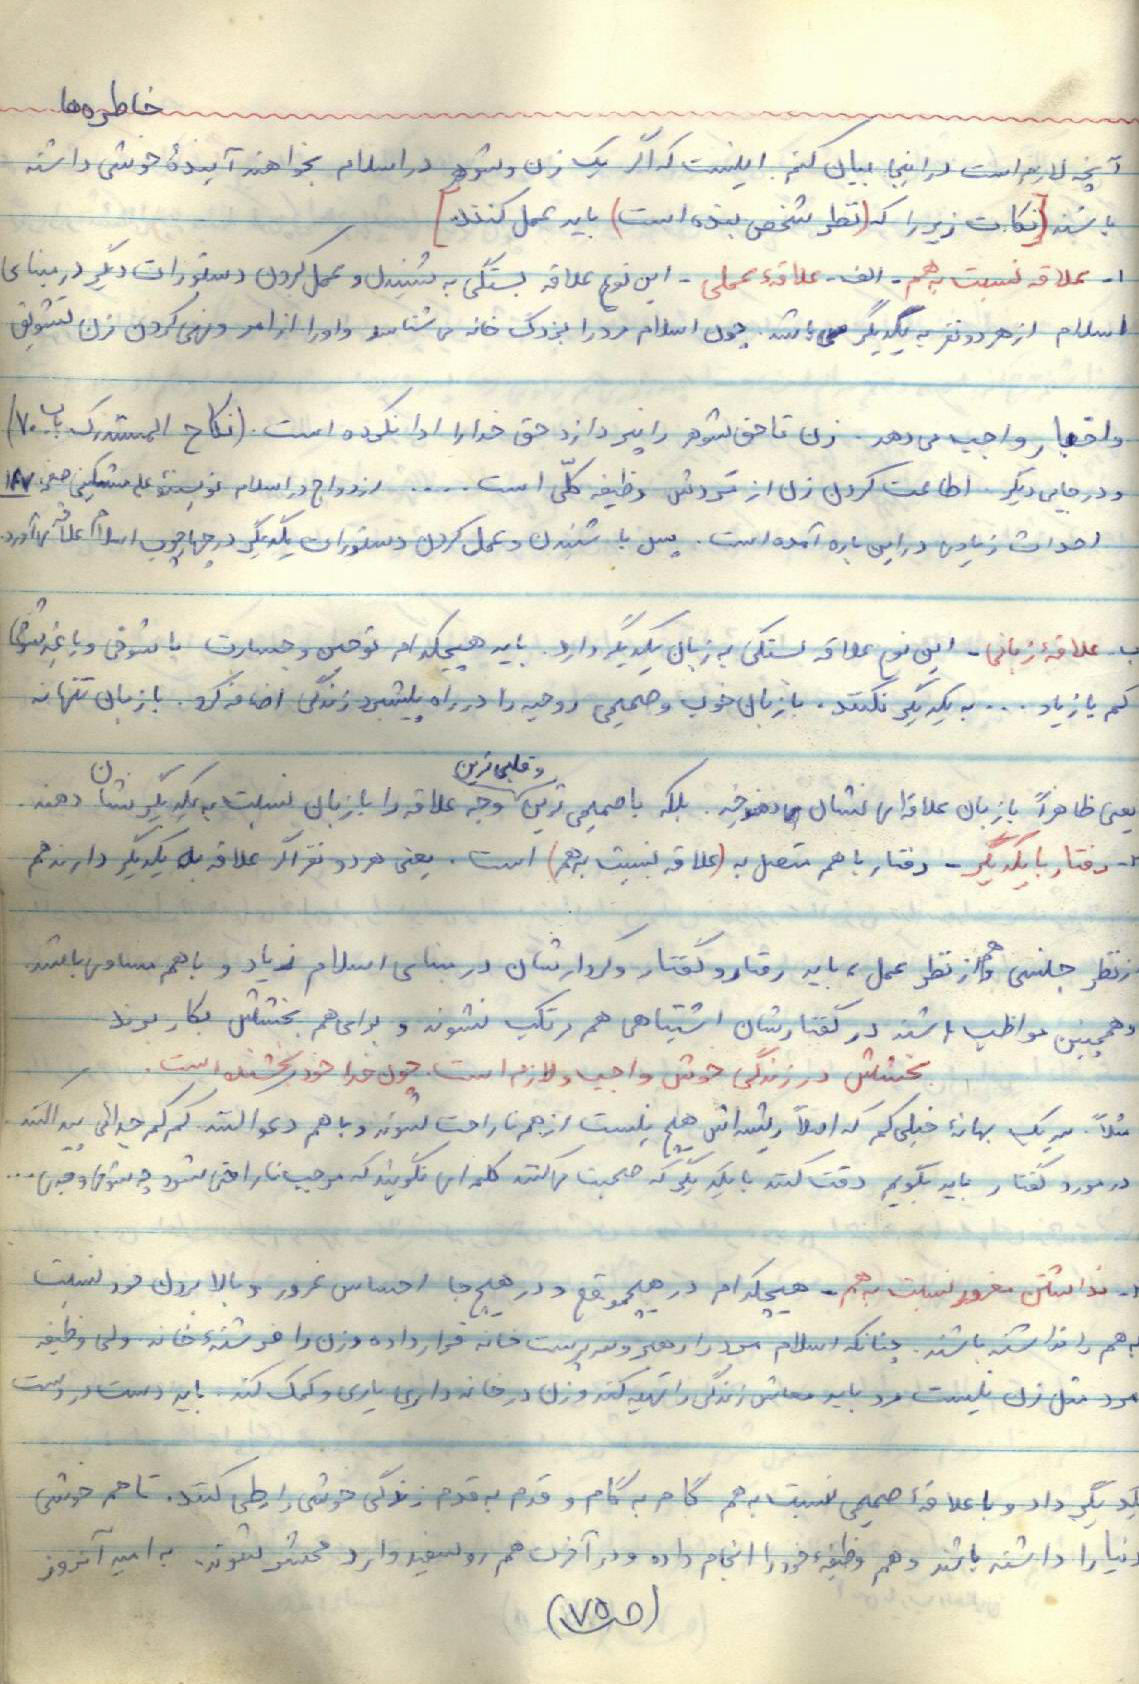 خاطره‌ها
آنچه لازم است در اینجا بیان کنم اینست که اگر یک زن و شوهر در اسلام بخواهند آیندهٔ خوشی داشته
باشند [نکات زیر را که (نظر شخصی بنده است) باید عمل کنند.]
۱- علاقه نسبت به هم - الف - علاقهٔ عملی - این نوع علاقه بستگی به شنیدن و عمل کردن دستورات دیگر در مبنای
اسلام از هر دو نفر به یکدیگر می‌باشد. چون اسلام مرد را بزرگ خانه می‌شناسد و او را از امر و نهی کردن زن تشویق
و اجبار واجب می‌دهد. زن تا حق شوهر را نپردازد حق خدا را ادا نکرده است. (نکاح المستدرک باب ۷۰)
و در جایی دیگر اطاعت کردن زن از مردش وظیفه کلّی است .... ازدواج در اسلام نویسنده علی مشکینی صفحه ۱۸۷
احداث زیادی در این باره آمده است. پس با شنیدن و عمل کردن دستورات یکدیگر در چهارچوب اسلام علاقه می‌آورد.
ب- علاقهٔ زبانی - این نوع علاقه بستگی به زبان یکدیگر دارد. باید هیچکدام توهین و جسارت با شوخی و یا غیر شوخی
کم یا زیاد ... به یکدیگر نکنند. با زبان خوب و صمیمی روحیه را در راه پیشبرد زندگی اضافه کرد. با زبان تنها نه
یعنی ظاهراً با زبان علاقه‌ای نشان بدهند خیر. بلکه با صمیمی ترین و قلبی ترین وجه علاقه را با زبان نسبت به یکدیگر نشان دهند.
۲- رفتار با یکدیگر - رفتار با هم متصل به (علاقه نسبت به هم) است. یعنی هر دو نفر اگر علاقه به یکدیگر دارند هم
از نظر جنسی و هم از نظر عمل، باید رفتار و گفتار و کردارشان در مبنای اسلام زیاد و با هم مساوی باشد.
و همچنین مواظب باشند در گفتارشان اشتباهی هم مرتکب نشوند و برای هم بخشش بکار برند
بخشش در زندگی خوش واجب و لازم است. چون خدا خود بخشنده است.
مثلاً. سر یک بهانهٔ خیلی کم که اصلاً ریشه‌اش هیچ نیست از هم ناراحت نشوند و با هم دعوا کنند. کم کم جدائی پیدا کنند
در مورد گفتار باید بگویم دقت کنند با یکدیگر که صحبت می‌کنند کلمه‌ای نگویند که موجب ناراحتی شود چه شوخی و جدی ...
۳- نداشتن غرور نسبت به هم - هیچکدام در هیچ موقع و در هیچ جا احساس غرور و بالا بردن خود نسبت
به هم را نداشته باشند. چنانکه اسلام مرد را رهبر و سرپرست خانه قرار داده و زن را فرشتهٔ خانه. ولی وظیفه
مرد مثل زن نیست مرد باید معاش زندگی را تهیه کند و زن در خانه داری یاری و کمک کند. باید دست در دست
یکدیگر داد و با علاقهٔ صمیمی نسبت به هم گام به گام و قدم به قدم زندگی خوشی را طی کنند. تا هم خوشی
دنیا را داشته باشند و هم وظیفهٔ خود را انجام داده و در آخرت هم روسفید وارد محشر شوند. به امید آنروز
(ص ۷۵)